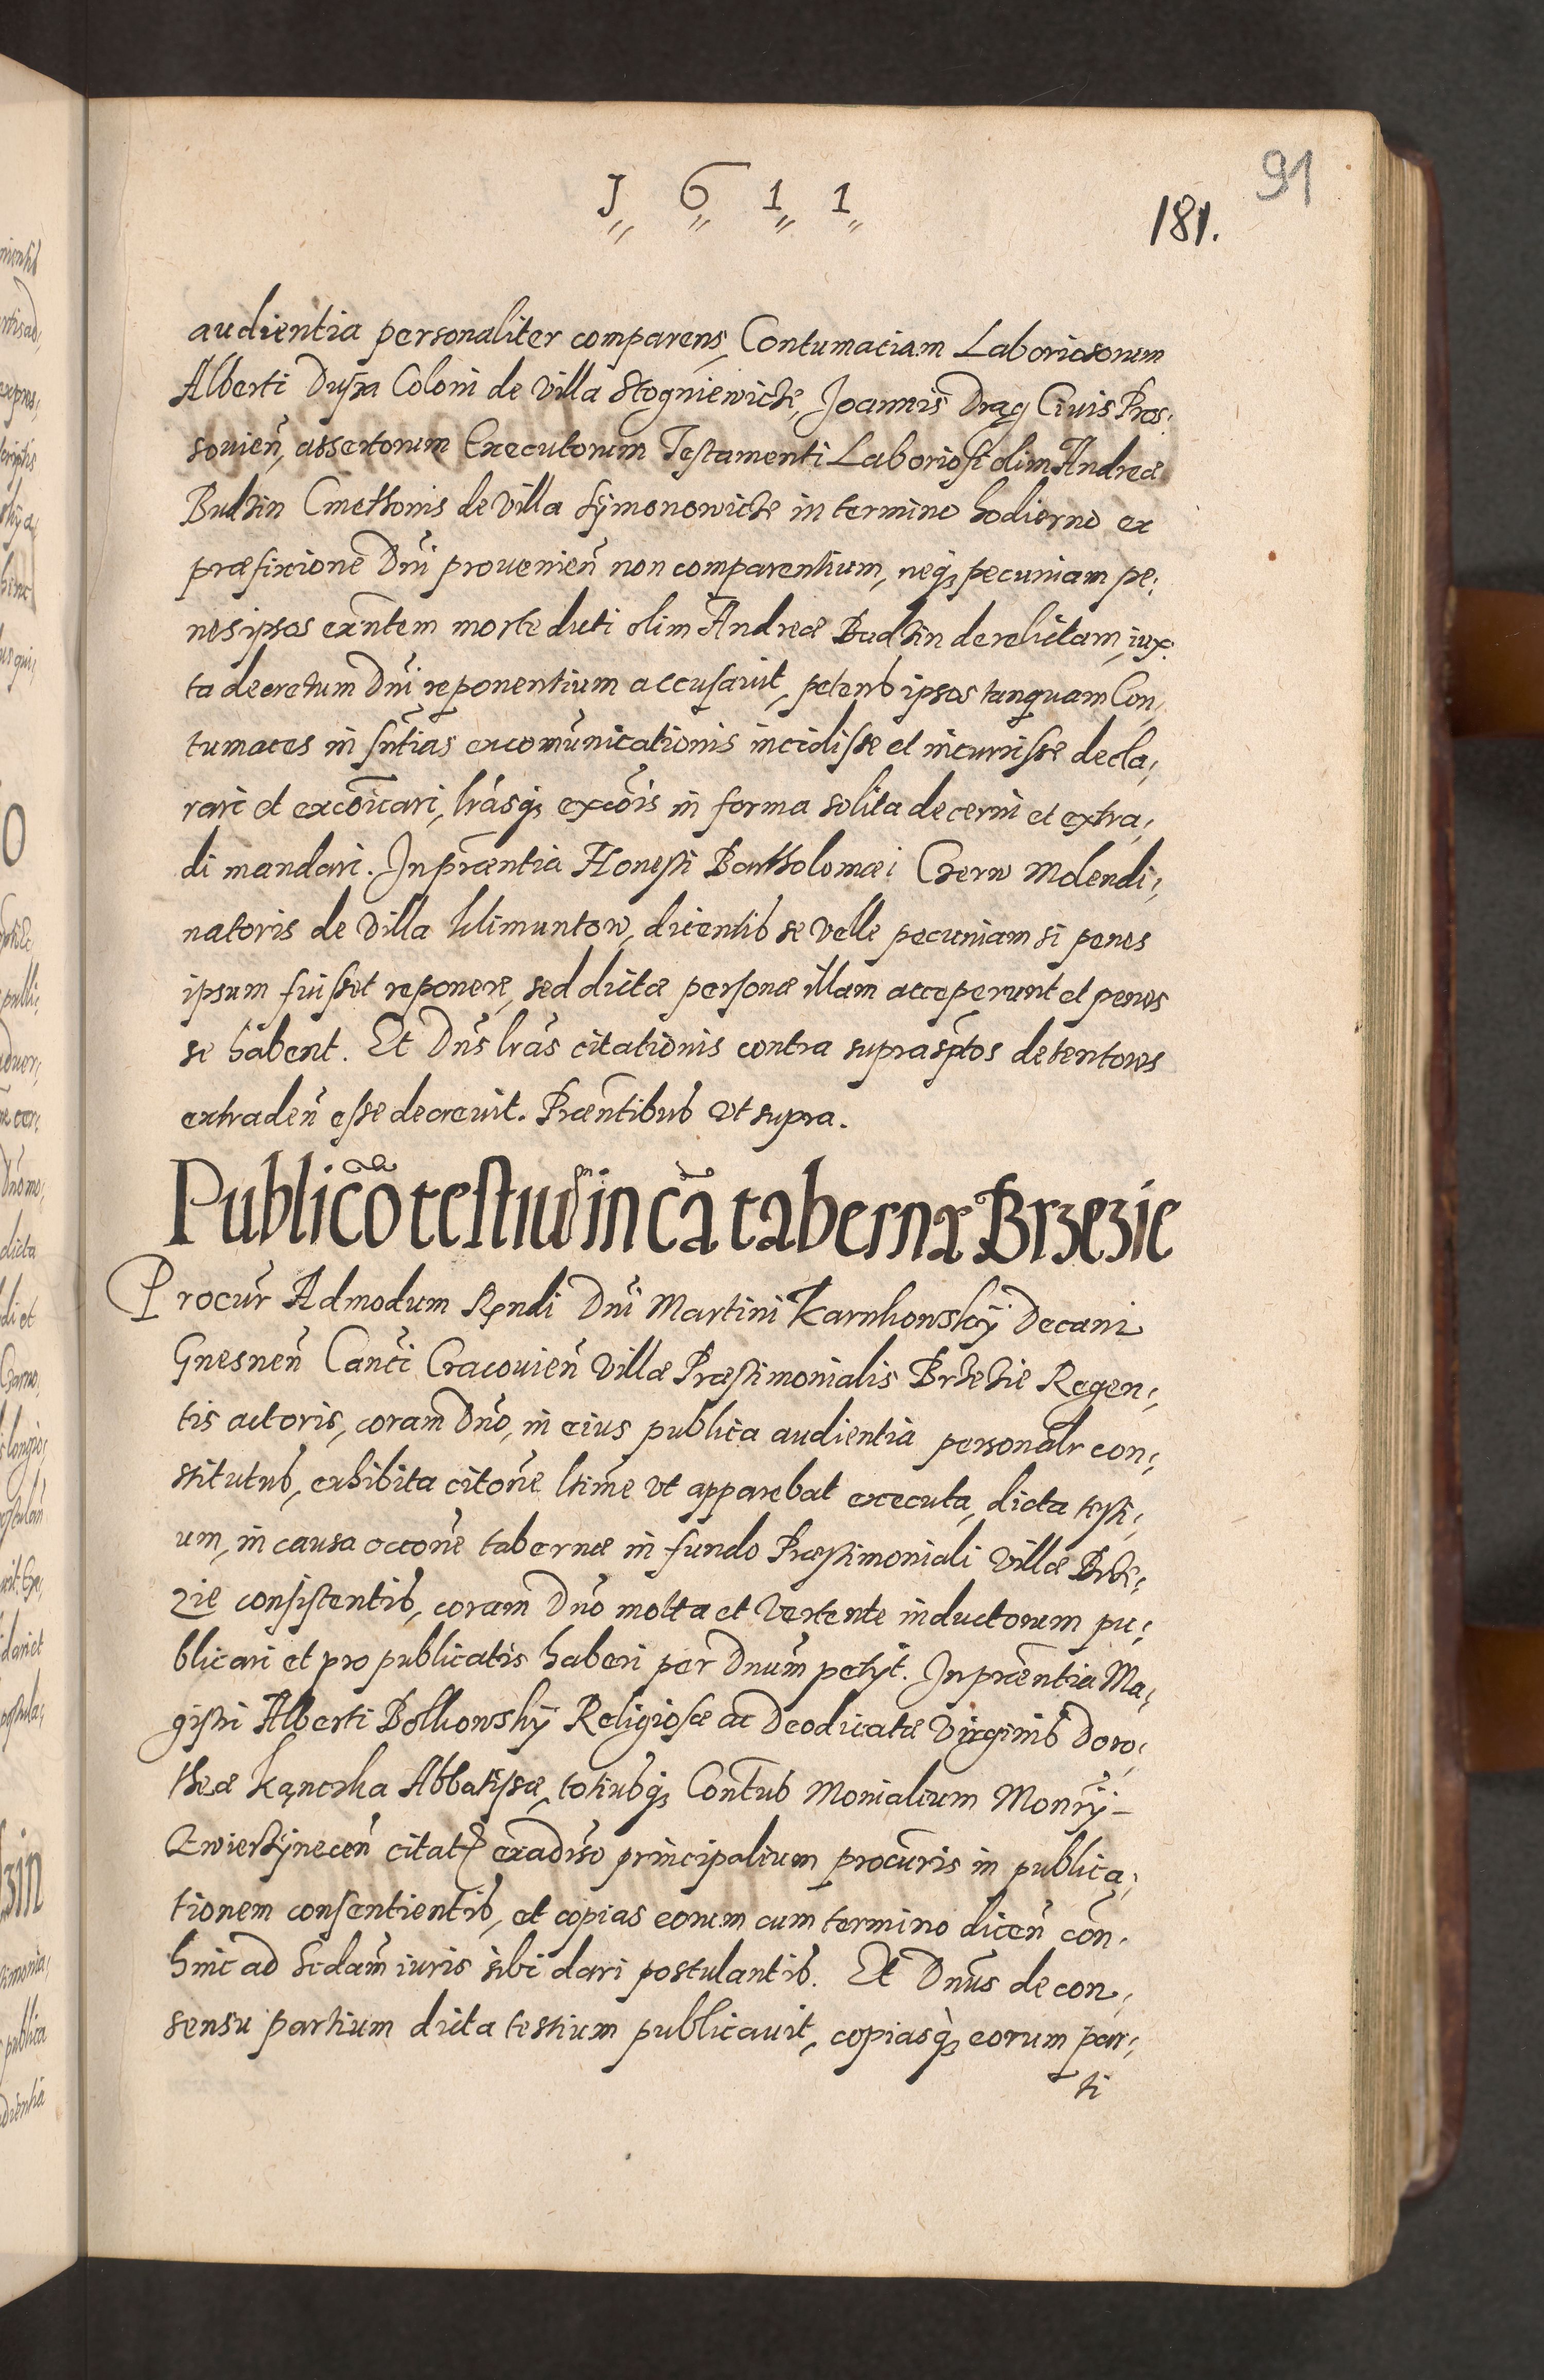 91
J 6 1 1
181.
audientia personaliter comparens, Contumaciam Laboriosorum
Alberti Duſza Coloni de villa Stogniewicze, Joannis Drąg Ciuis Pros:
souień, assertorum Executorum Testamenti Laborioſi olim Andreæ
Budzin Cmethonis de villa Sÿmonowicze in termino hodierno ex
præfixione Dñi prouenień non comparentium, neqꝫ pecuniam pe:
nes ipsos exñtem morte dicti olim Andreæ Budzin derelictam, iux:
ta decretum Dñi reponentium accusauit, petens ipsos tanquam Con:
tumaces in sñtias excomũnicationis incidisse et incurrisse decla:
rari et excõicari, lrãsqꝫ excõis in forma solita decerni et extra:
di mandari. In præntia Honesti Bartholomæi Czerw Molendi:
natoris de villa Klimuntow, dicentis se velle pecuniam si penes
ipsum fuisset reponere, sed dictæ personæ illam acceperunt et penes
se habent. Et Dñs lrãs citationis contra suprasptos detentores
extradeñ esse decreuit. Præntibus vt supra.
Publicõ testiũ in cã tabernæ Brzezie
Procur̃ Admodum Rṇdi Dñi Martini Karnkowskÿ Decani
Gnesneñ Canci Cracouieñ villæ Præstimonialis Brzezie Regen:
tis actoris, coram Dño, in eius publica audientia personalr con:
stitutus, exhibita citõne ltime vt apparebat executa, dicta testi:
um, in causa occõne tabernæ in fundo Præstimoniali villæ Brze:
zie consistentis, coram Dño motta et vertente inductorum pu:
blicari et pro publicatis haberi per Dnum petÿt. In præntia Ma:
gistri Alberti Bolkowskÿ Religiosæ ac Deodicatæ Virginis Doro:
theæ Kąnczka Abbatissæ, totiusqꝫ Contus Monialium Monrÿ
Zwierzÿneceñ citatꝭ ex adũso principalium procuris in publica:
tionem consentientis, et copias eorum cum termino diceñ coñ.
hinc ad Scdam iuris sibi dari postulantis. Et Dnus de con:
sensu partium dicta testium publicauit, copiasqꝫ eorum par:
ti